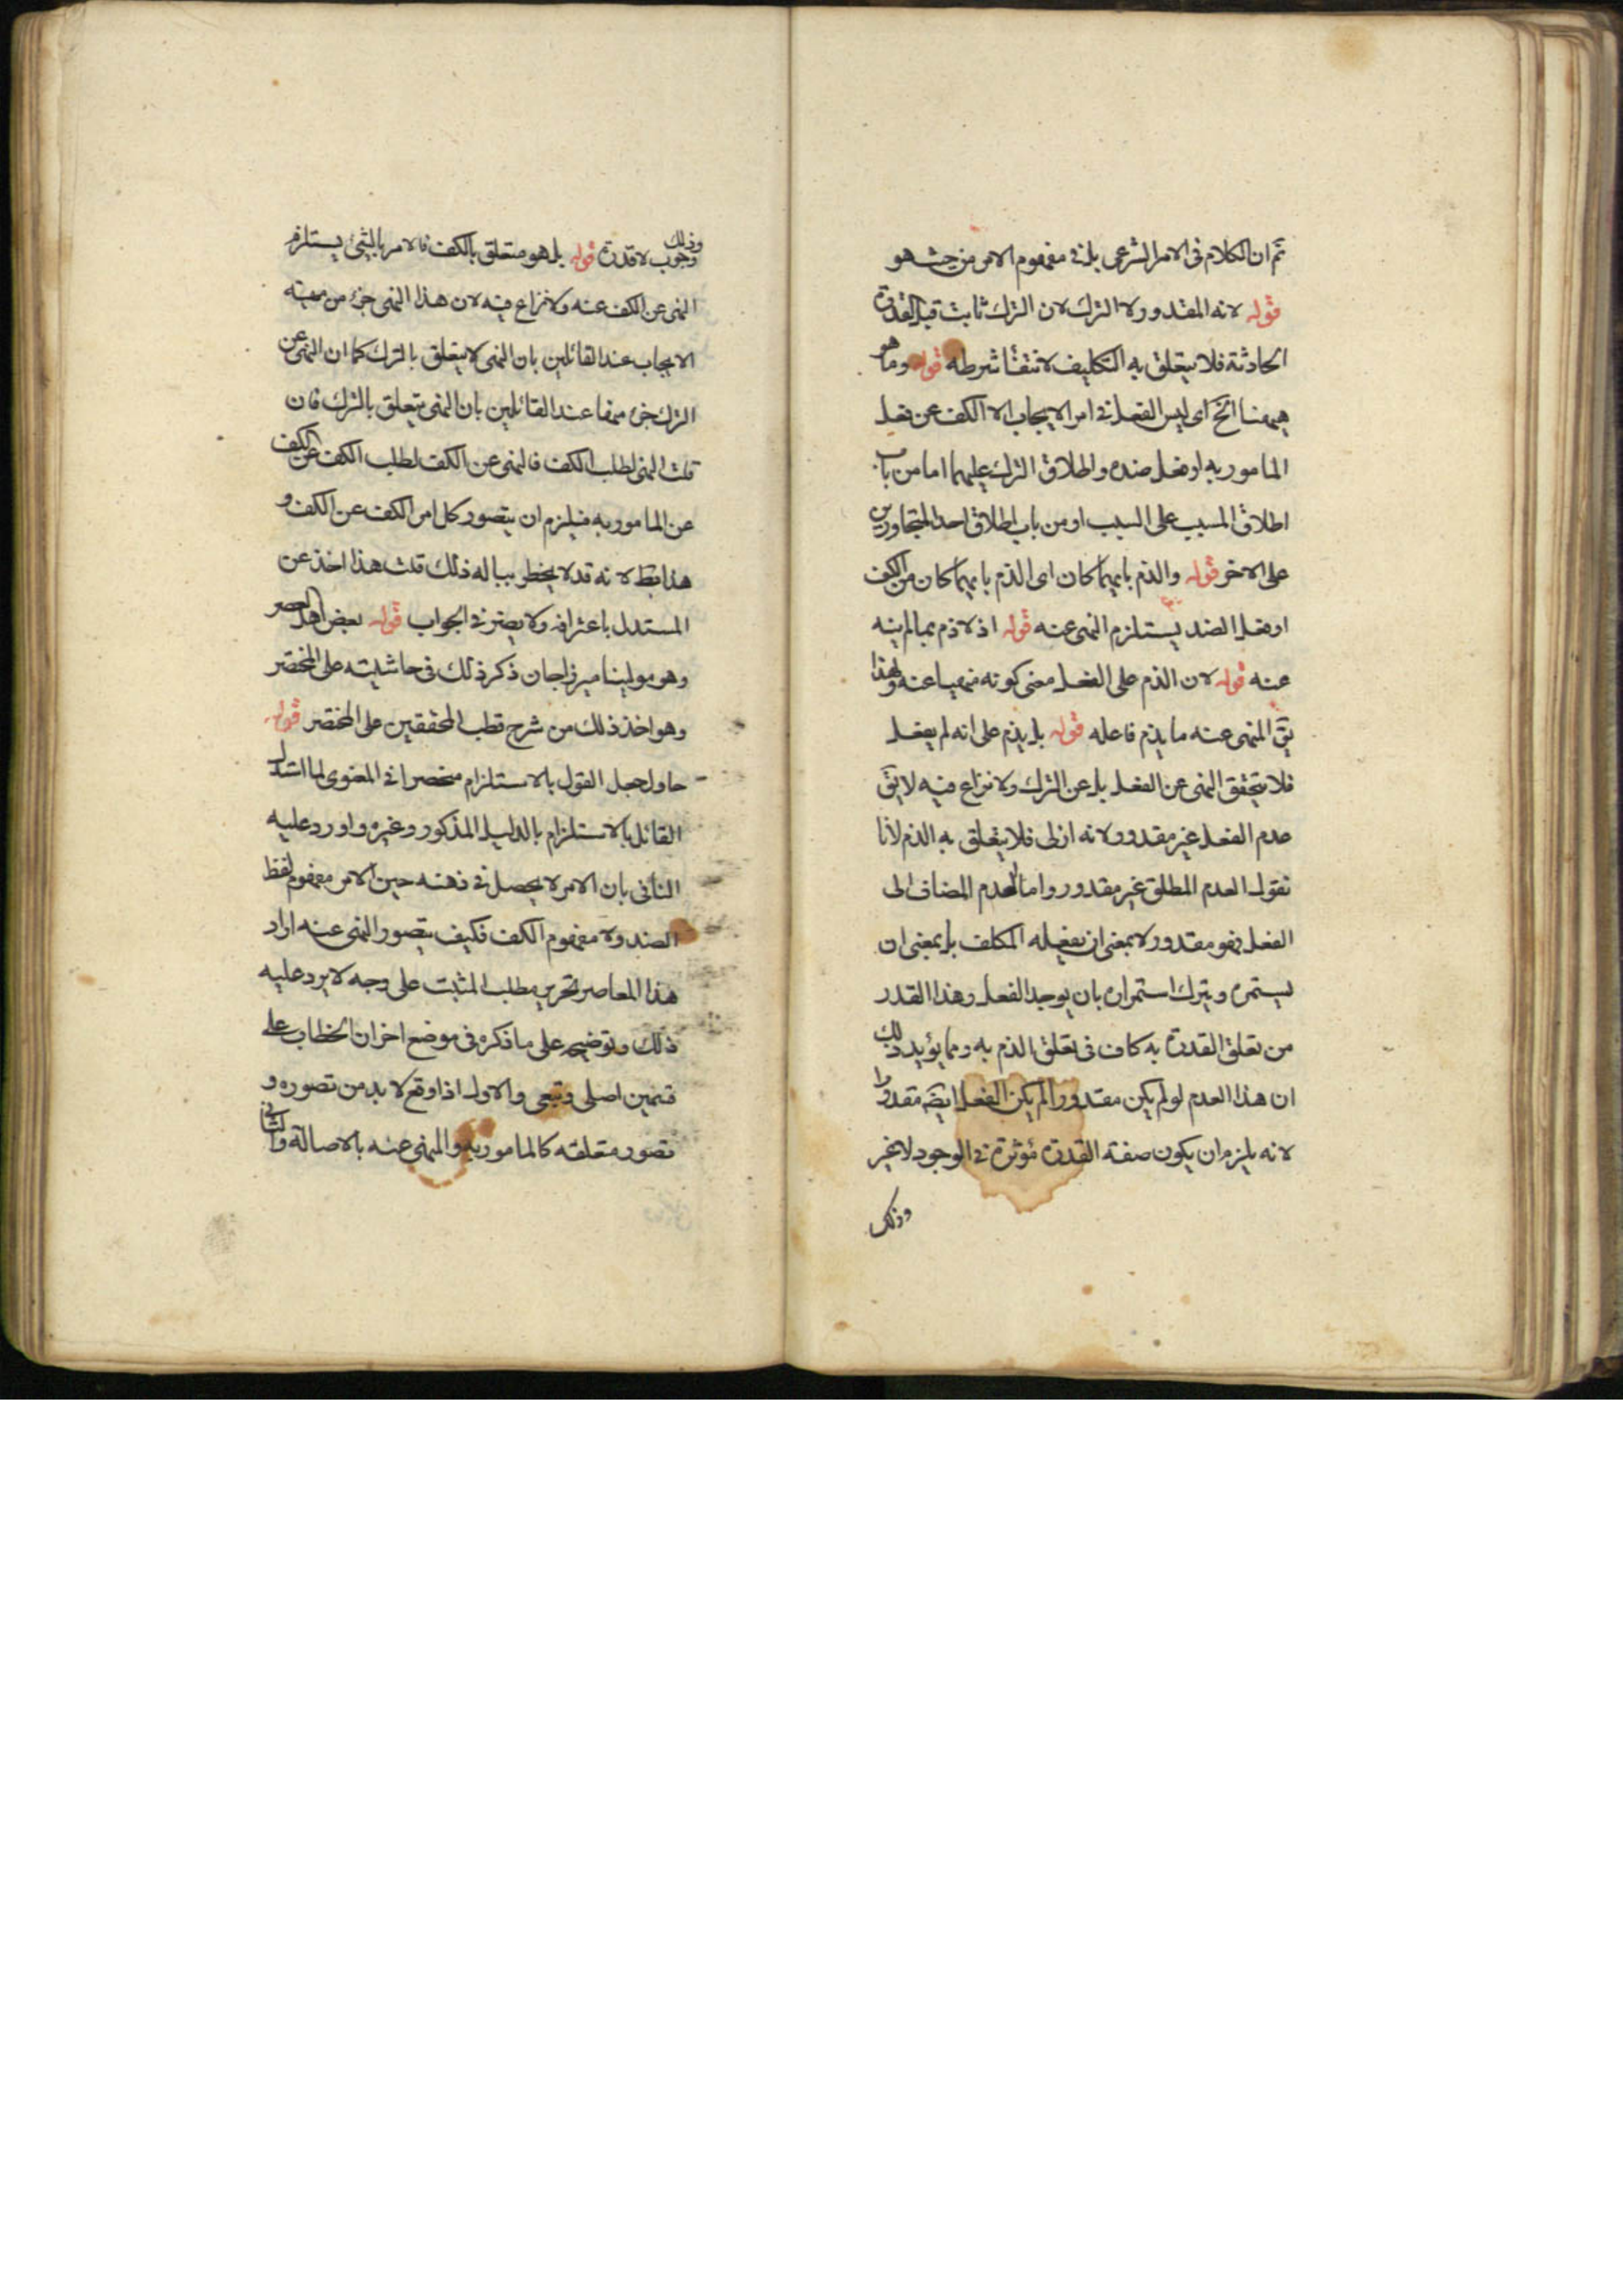 ثم ان الكلام فى الامر الشرعى بل فى مفهوم الامر من حيث هو
قوله لانه المقدور ولا الترك لان الترك ثابت قبل القدرة
الحادثة فلا يتعلق به التكليف لانتفاء شرطه قوله وما هو
ههنا الخ اى ليس الفعل فى امر الايجاب الا الكف عن فعل
المامور به او فعل ضده واطلاق الترك عليهما اما من باب
اطلاق المسبب على السبب او من باب اطلاق احد المتجاورين
على الاخر قوله والذم بايهما كان اى الذم بايهما كان من الكف
او فعل الضد يستلزم النهى عنه قوله اذ لا ذم بما لم ينه
عنه قوله لان الذم على الفعل معنى كونه منهيا عنه ولهذا
يق المنهى عنه ما يذم فاعله قوله بل يذم على انه لم يفعل
فلا يتحقق النهى عن الفعل بل عن الترك ولا نزاع فيه لا يق
عدم الفعل غير مقدور ولانه ازلى فلا يتعلق به الذم لانا
نقول العدم المطلق غير مقدور واما العدم المضاف الى
الفعل فهو مقدور لا بمعنى ان يفعله المكلف بل بمعنى ان
يستمره ويترك استمراره بان يوجد الفعل وهذا القدر
من تعلق القدرة به كاف فى تعلق الذم به ومما يؤيد ذلك
ان هذا العدم لو لم يكن مقدورا لم يكن الفعل ايضه مقدورا
لانه يلزم ان يكون صفة القدرة مؤثرة فى الوجود لا غير
وذلك
وذلك
وجوب لا قدرة قوله بل هو متعلق بالكف فالامر بالشئ يستلزم
النهى عن الكف عنه ولا نزاع فيه لان هذا النهى جزء من مهيته
الايجاب عند القائلين بان النهى لا يتعلق بالترك كما ان النهى عن
الترك جزء منها عند القائلين بان النهى يتعلق بالترك فان
قلت النهى لطلب الكف فالنهى عن الكف لطلب الكف عن الكف
عن المامور به فيلزم ان يتصور كل امر الكف عن الكف و
هذا بط لانه قد لا يخطر بباله ذلك قلت هذا اخذ عن
المستدل باعترافه ولا يضر فى الجواب قوله بعض اهل العصر
وهو مولينا ميرزاجان ذكر ذلك فى حاشيته على المختصر
وهو اخذ ذلك من شرح قطب المحققين على المختصر قوله
حاول جعل القول بالاستلزام منحصرا فى المعنوى لما استدل
القائل بالاستلزام بالدليل المذكور وغيره واورد عليه
النافى بان الامر لا يحصل فى ذهنه حين الامر مفهوم لفظ
الضد ولا مفهوم الكف فكيف يتصور النهى عنه اراد
هذا المعاصر تحرير مطلب المثبت على وجه لا يرد عليه
ذلك وتوضيحه على ما ذكره فى موضع اخر ان الخطاب على
قسمين اصلى وتبعى والاول اذا وقع لا بد من تصوره و
تصور متعلقه كالمامور به والمنهى عنه بالاصالة والثانى